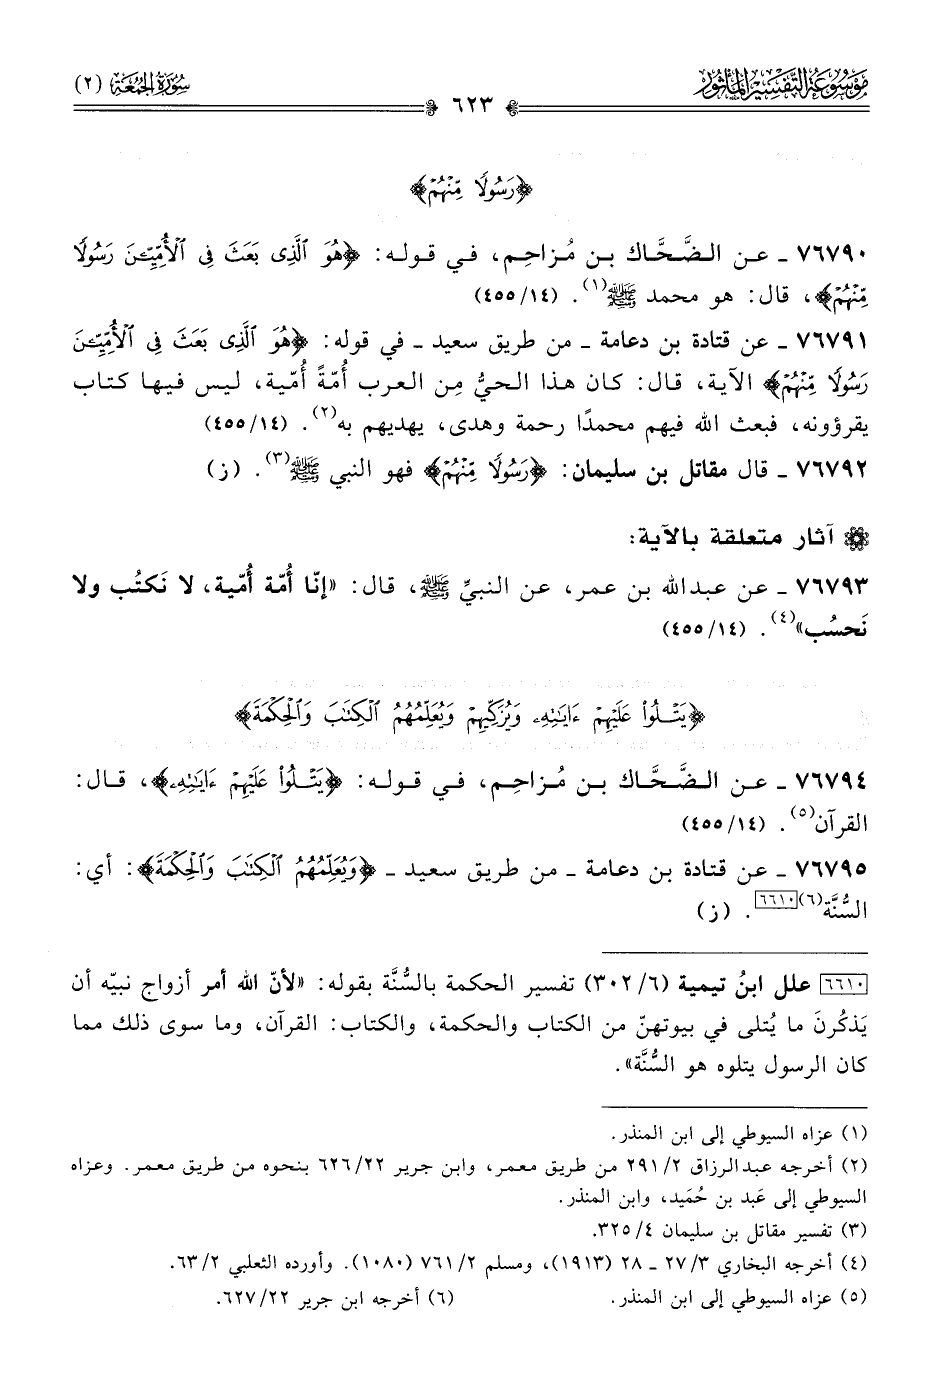 مَوْسُوعَة التَّفْسِير المَأْثُور
سُورَة الجُمُعَة (٢)
٦٢٣
﴿رَسُولًا مِّنْهُمْ﴾
٧٦٧٩٠ ـ عن الضَّحَّاك بن مُزاحِم، في قوله: ﴿هُوَ ٱلَّذِى بَعَثَ فِى ٱلْأُمِّيِّـۧنَ رَسُولًا
مِّنْهُمْ﴾، قال: هو محمد ﷺ(١). (١٤/ ٤٥٥)
٧٦٧٩١ ـ عن قتادة بن دعامة ـ من طريق سعيد ـ في قوله: ﴿هُوَ ٱلَّذِى بَعَثَ فِى ٱلْأُمِّيِّـۧنَ
رَسُولًا مِّنْهُمْ﴾ الآية، قال: كان هذا الحيُّ مِن العرب أُمّةً أُمّية، ليس فيها كتاب
يقرؤونه، فبعث الله فيهم محمدًا رحمة وهدى، يهديهم به(٢). (١٤/ ٤٥٥)
٧٦٧٩٢ ـ قال مقاتل بن سليمان: ﴿رَسُولًا مِّنْهُمْ﴾ فهو النبي ﷺ(٣). (ز)
آثار متعلقة بالآية:
٧٦٧٩٣ ـ عن عبدالله بن عمر، عن النبيِّ ﷺ، قال: «إنّا أُمّة أُمّية، لا نَكتُب ولا
نَحسُب»(٤). (١٤/ ٤٥٥)
﴿يَتْلُوا۟ عَلَيْهِمْ ءَايَـٰتِهِۦ وَيُزَكِّيهِمْ وَيُعَلِّمُهُمُ ٱلْكِتَـٰبَ وَٱلْحِكْمَةَ﴾
٧٦٧٩٤ ـ عن الضَّحَّاك بن مُزاحِم، في قوله: ﴿يَتْلُوا۟ عَلَيْهِمْ ءَايَـٰتِهِۦ﴾، قال:
القرآن(٥). (١٤/ ٤٥٥)
٧٦٧٩٥ ـ عن قتادة بن دعامة ـ من طريق سعيد ـ ﴿وَيُعَلِّمُهُمُ ٱلْكِتَـٰبَ وَٱلْحِكْمَةَ﴾: أي:
السُّنَّة(٦)٦٦١٠. (ز)
٦٦١٠ علل ابنُ تيمية (٦/ ٣٠٢) تفسير الحكمة بالسُّنَّة بقوله: «لأنّ الله أمر أزواج نبيّه أن
يَذكُرنَ ما يُتلى في بيوتهنّ من الكتاب والحكمة، والكتاب: القرآن، وما سوى ذلك مما
كان الرسول يتلوه هو السُّنَّة».
(١) عزاه السيوطي إلى ابن المنذر.
(٢) أخرجه عبدالرزاق ٢/ ٢٩١ من طريق معمر، وابن جرير ٢٢/ ٦٢٦ بنحوه من طريق معمر. وعزاه
السيوطي إلى عَبد بن حُمَيد، وابن المنذر.
(٣) تفسير مقاتل بن سليمان ٤/ ٣٢٥.
(٤) أخرجه البخاري ٣/ ٢٧ ـ ٢٨ (١٩١٣)، ومسلم ٢/ ٧٦١ (١٠٨٠). وأورده الثعلبي ٢/ ٦٣.
(٥) عزاه السيوطي إلى ابن المنذر. (٦) أخرجه ابن جرير ٢٢/ ٦٢٧.